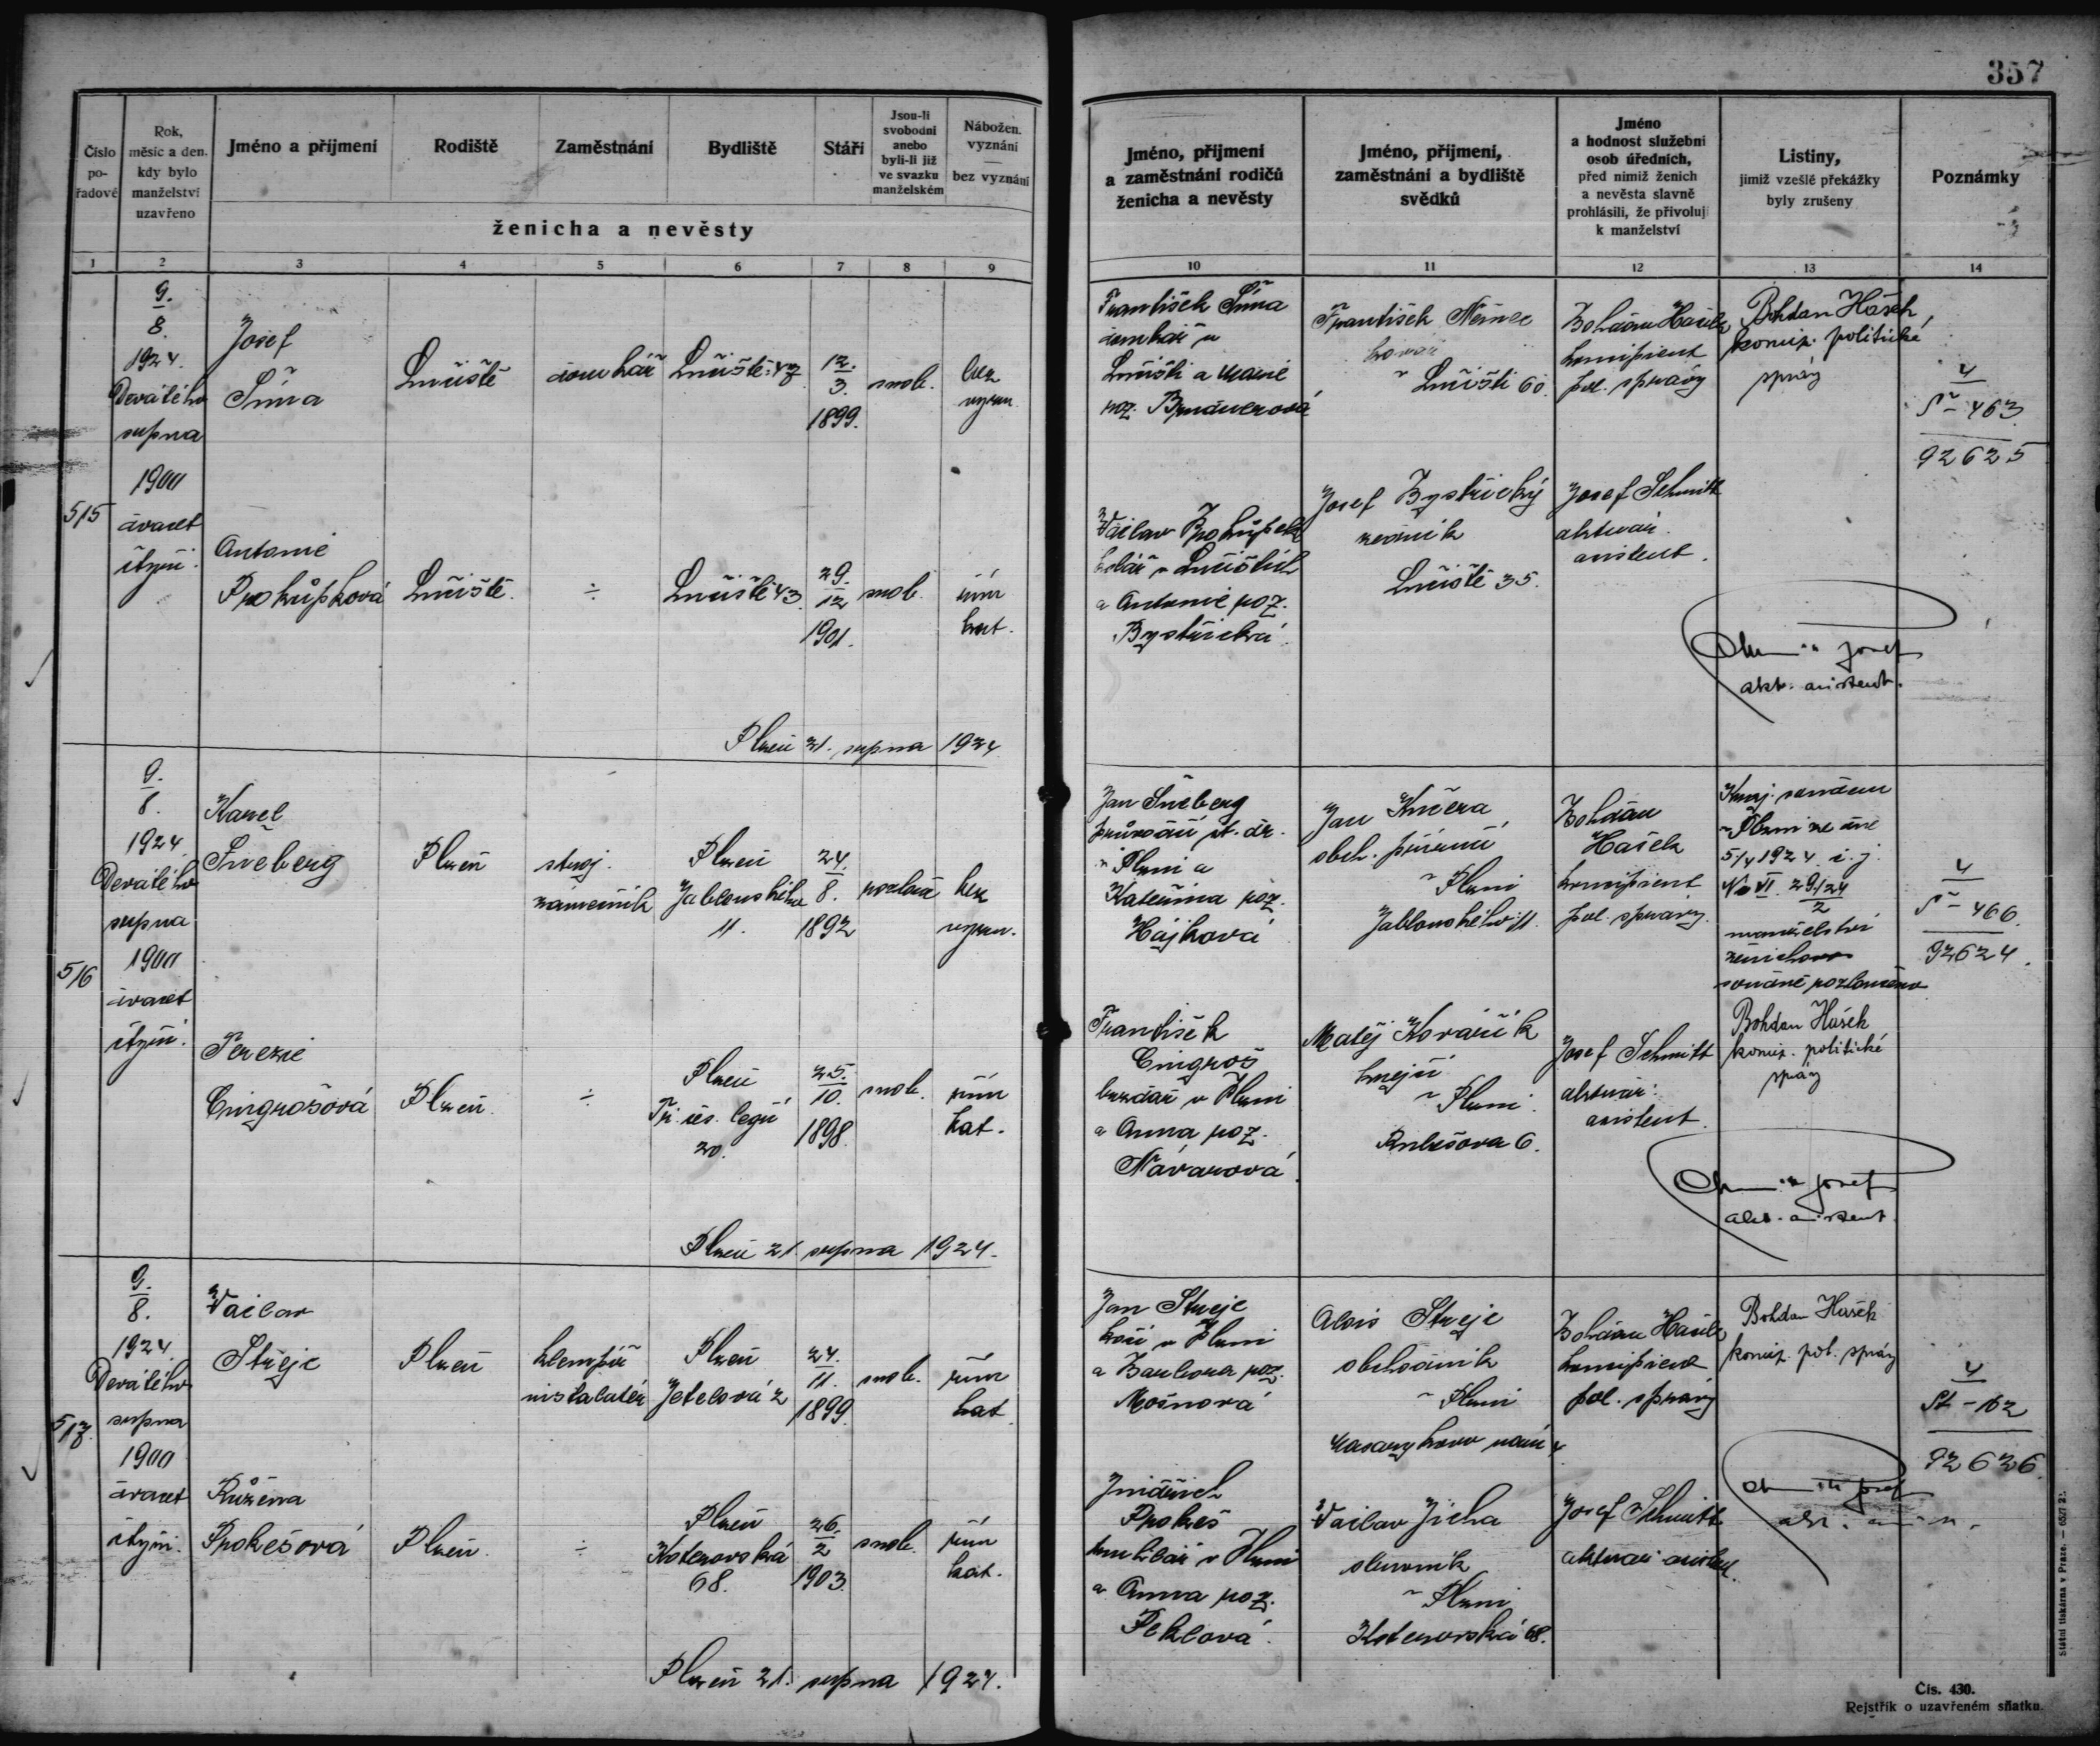 357
Číslo pořadové
Rok, měsíc a den, kdy bylo manželství uzavřeno
Jméno a příjmení
Rodiště
Zaměstnání
Bydliště
Stáří
Jsou-li svobodni anebo byli-li již ve svazku manželském
Nábožen. vyznání — bez vyznání
ženicha a nevěsty
Jméno, příjmení a zaměstnání rodičů ženicha a nevěsty
Jméno, příjmení, zaměstnání a bydliště svědků
Jméno a hodnost služební osob úředních, před nimiž ženich a nevěsta slavně prohlásili, že přivolují k manželství
Listiny, jimiž vzešlé překážky byly zrušeny
Poznámky
1 2 3 4 5 6 7 8 9 10 11 12 13 14
515
9.
8.
1924.
Devátého
srpna
1900
dvacet
čtyři.
Josef
Šíma
12.
3.
1899.
svob.
bez
vyzn.
František Šíma
František Němec
Bohdan Hašek
koncipient
pol. správy
Bohdan Hašek,
koncip. politické
správy
4
Š - 463.
92625
Antonie
Prokůpková
÷
29.
12
1901.
svob.
řím
kat.
Václav Prokůpek
a Antonie roz.
Bystřická.
Josef Bystřický
35.
Josef Schmitt
aktuár.
asistent.
Josef
akt. asistent.
Plzeň 21. srpna 1924
516
9.
8.
1924
Devátého
srpna
1900
dvacet
čtyři.
Karel
Šneberg
Plzeň
stroj.
zámečník
Plzeň
Jablonského
11.
24.
8.
1892
rozlouč
bez
vyzn.
Jan Šneberg
průvodčí st. dr.
v Plzni a
Kateřina roz.
Hájková
Jan Kučera
obch. příručí
v Plzni
Jablonského 11.
Bohdan
Hašek
koncipient
pol. správy.
Kraj. soudem
v Plzni ze dne
5/4 1924 č. j.
Nc VI. 29/24
2
manželství
ženichovo
soudně rozloučeno
Bohdan Hašek
koncip. politické
správy
4
Š - 466.
92624.
Terezie
Cingrošová
Plzeň.
÷
Plzeň
Tř. čs. legií
20.
25.
10.
1898.
svob.
řím
kat.
František
Cingroš
v Plzni
a Anna roz.
Návarová.
Matěj Kovařík
krejčí
v Plzni.
6.
Josef Schmitt
aktuár.
asistent.
Josef
akt. asistent.
Plzeň 21. srpna 1924.
517
9.
8.
1924
Devátého
srpna
1900
dvacet
čtyři.
Václav
Střeje
Plzeň
klempíř
instalatér
Plzeň
Jetelová 2
24.
11.
1899.
svob.
řím
kat.
Jan Streje
kočí v Plzni
a Barbora roz.
Mošnová
Alois Streje
obchodník
v Plzni
Masarykovo nám 4
Bohdan Hašek
koncipient
pol. správy
Bohdan Hašek
koncip. pol. správy
4
St - 162
92626.
Růžena
Prokešová
Plzeň.
÷
Plzeň
Koterovská
68.
26.
2
1903.
svob.
řím
kat.
Jindřich
Prokeš
truhlář v Plzni
a Anna roz.
Peklová.
Václav Jícha
v Plzni
Koterovská 68.
Josef Schmitt
aktuár. asistent.
Josef
Plzeň 21. srpna 1924.
Čís. 430.
Rejstřík o uzavřeném sňatku.
Státní tiskárna v Praze.